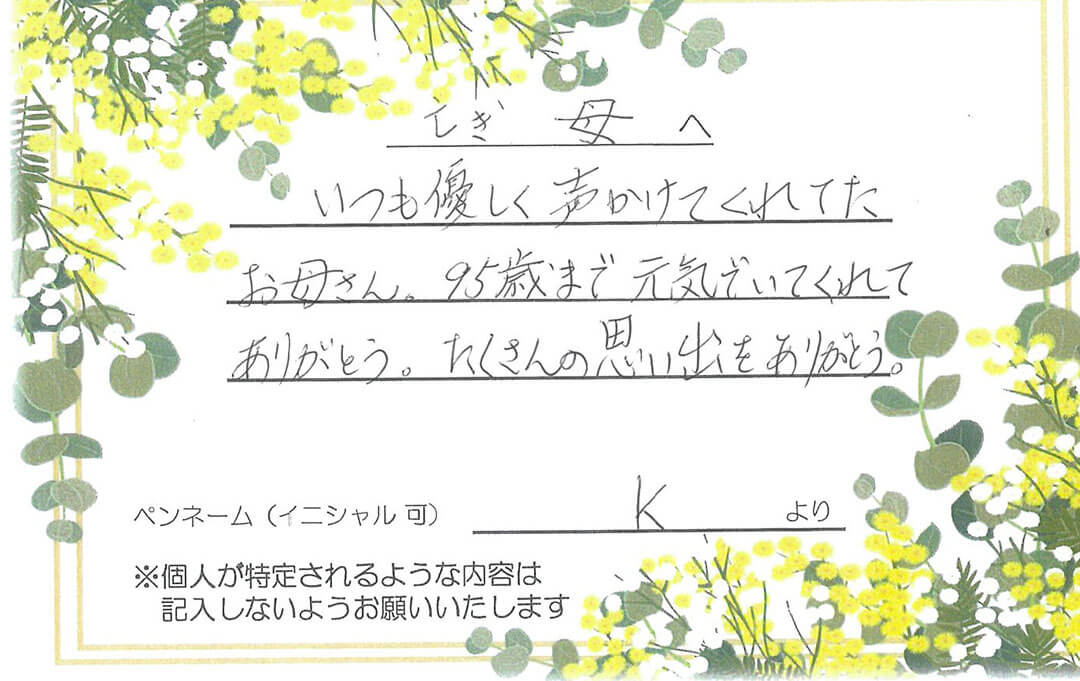 母 へ
いつも優しく声かけてくれてた
お母さん。95歳まで元気でいてくれて
ありがとう。たくさんの思い出をありがとう。
ペンネーム（イニシャル 可） K より
※個人が特定されるような内容は
記入しないようお願いいたします